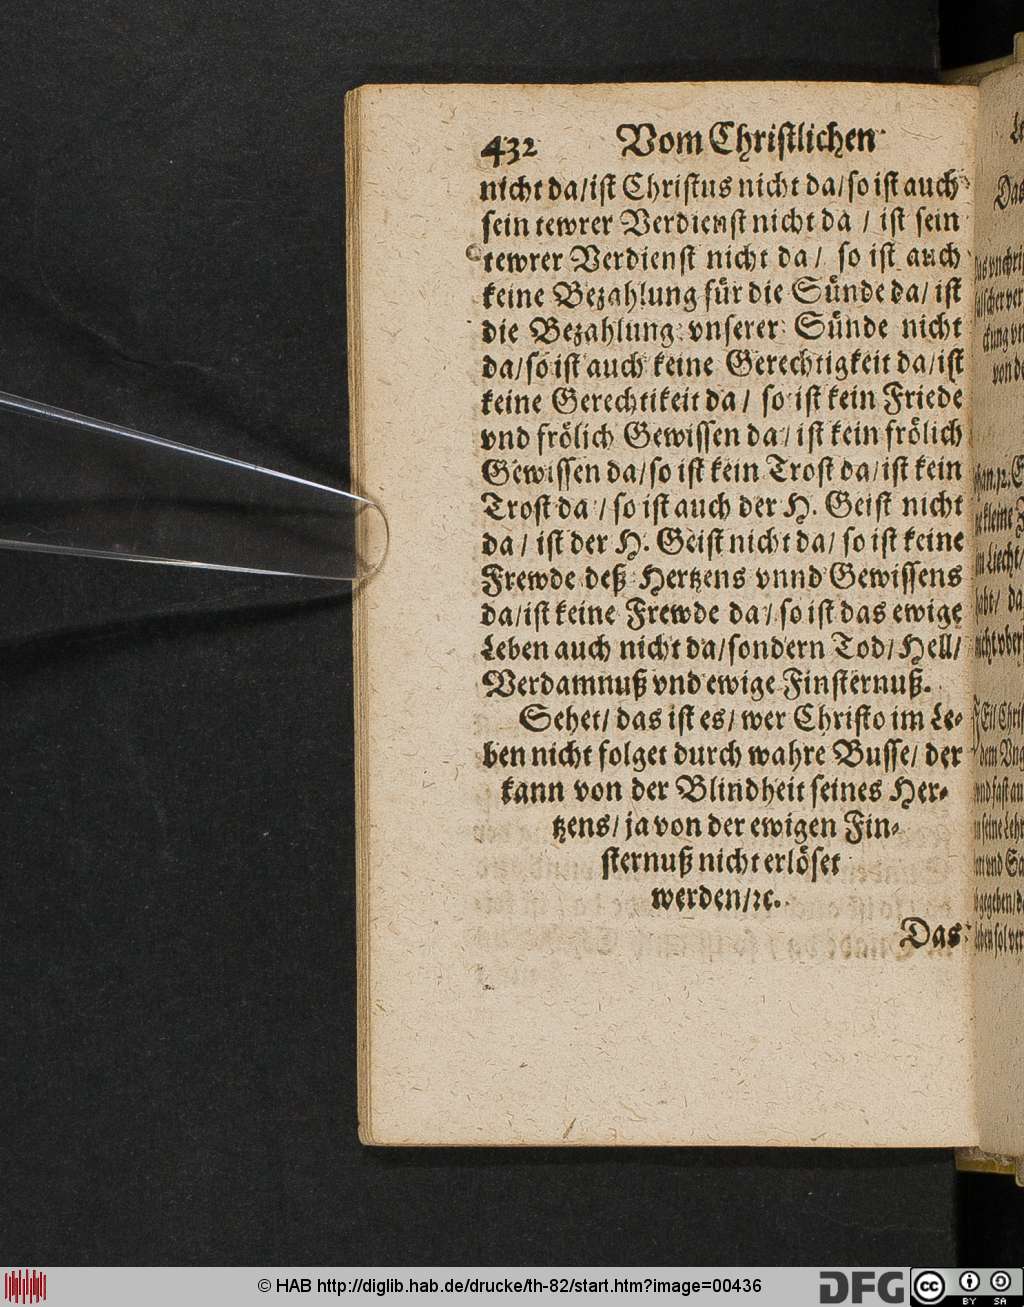 432 Vom Christlichen
nicht da/ist Christus nicht da/so ist auch
sein tewrer Verdienst nicht da / ist sein
tewrer Verdienst nicht da/ so ist auch
keine Bezahlung für die Sünde da/ ist
die Bezahlung vnserer Sünde nicht
da/so ist auch keine Gerechtigkeit da/ist
keine Gerechtikeit da/ so ist kein Friede
vnd frölich Gewissen da/ ist kein frölich
Gewissen da/so ist kein Trost da/ist kein
Trost da / so ist auch der H. Geist nicht
da / ist der H. Geist nicht da/ so ist keine
Frewde deß Hertzens vnnd Gewissens
da/ist keine Frewde da/ so ist das ewige
Leben auch nicht da/sondern Tod/ Hell/
Verdamnuß vnd ewige Finsternuß.
Sehet/ das ist es/ wer Christo im Le-
ben nicht folget durch wahre Busse/ der
kann von der Blindheit seines Her-
tzens/ ja von der ewigen Fin-
sternuß nicht erlöset
werden/ꝛc.
Das
© HAB http://diglib.hab.de/drucke/th-82/start.htm?image=00436
DFG
cc BY SA